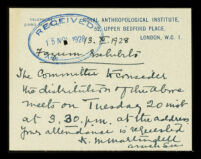 TELEPHONE
ROYAL ANTHROPOLOGICAL INSTITUTE,
52, UPPER BEDFORD PLACE,
LONDON, W.C. 1.
RECEIVED
15 NOV 1928
13. XI 1928
Fayum Exhibits
The Committee to consider
the distribution of the above
meets on Tuesday 20 inst
at 3.30 p.m. at the address
Your attendance is requested